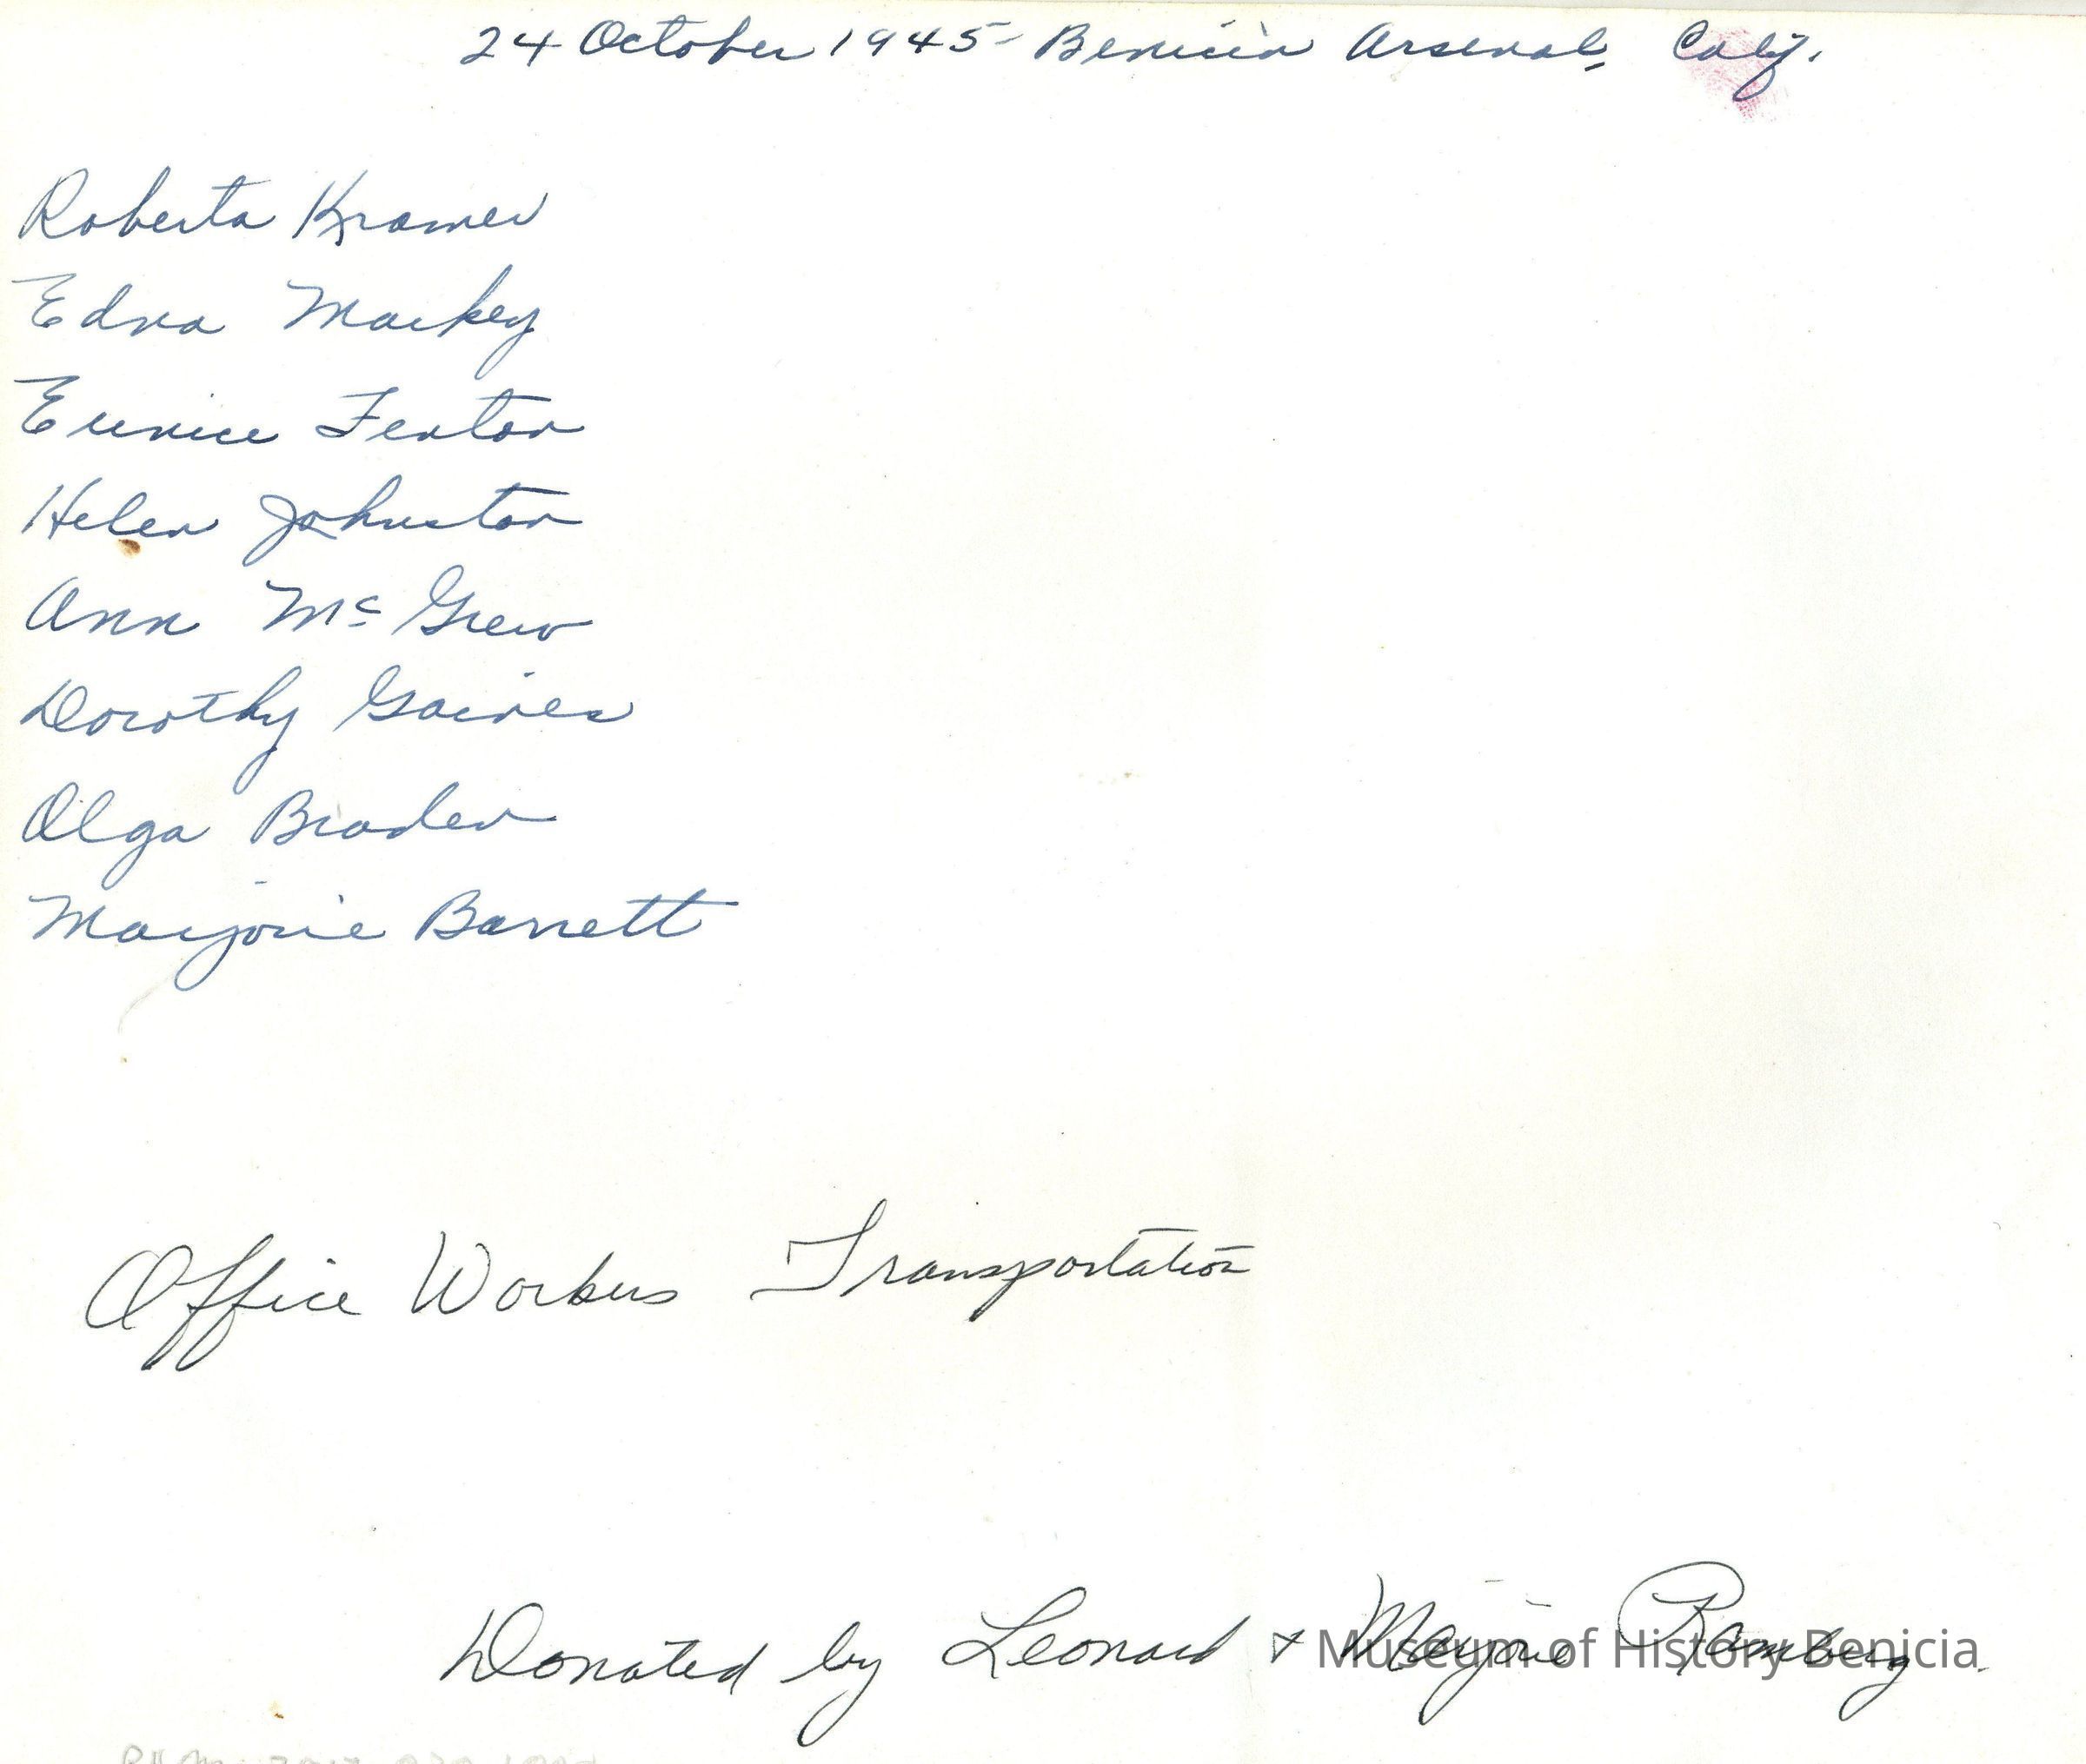 24 October 1945- Benicia Arsenal, Calif.
Roberta Kramer
Edna Mackey
Eunice Fenton
Helen Johnston
Ann Mc Grew
Dorothy Gaines
Olga Braden
Marjorie Barrett
Office Workers Transportation
Donated by Leonard & Marjorie Ramberg.
Museum of History Benicia